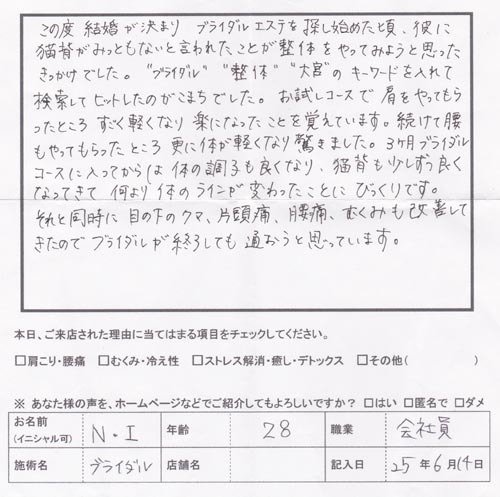 この度 結婚が決まり ブライダルエステを探し始めた頃、彼に
猫背がみっともないと言われたことが整体をやってみようと思った
きっかけでした。"ブライダル" "整体" "大宮"のキーワードを入れて
検索してヒットしたのがこまちでした。お試しコースで肩をやってもら
ったところ すごく軽くなり 楽になったことを覚えています。続けて腰
もやってもらったところ 更に体が軽くなり驚きました。3ヶ月ブライダル
コースに入ってからは 体の調子も良くなり、猫背も少しずつ良く
なってきて 何より体のラインが変わったことにびっくりです。
それと同時に 目の下のクマ、片頭痛、腰痛、むくみも改善して
きたので ブライダルが終了しても 通おうと思っています。
本日、ご来店された理由に当てはまる項目をチェックしてください。
□肩こり・腰痛 □むくみ・冷え性 □ストレス解消・癒し・デトックス □その他( )
※ あなた様の声を、ホームページなどでご紹介してもよろしいですか? □はい □匿名で □ダメ
お名前 (イニシャル可) N・I 年齢 28 職業 会社員
施術名 ブライダル 店舗名 記入日 25年6月14日